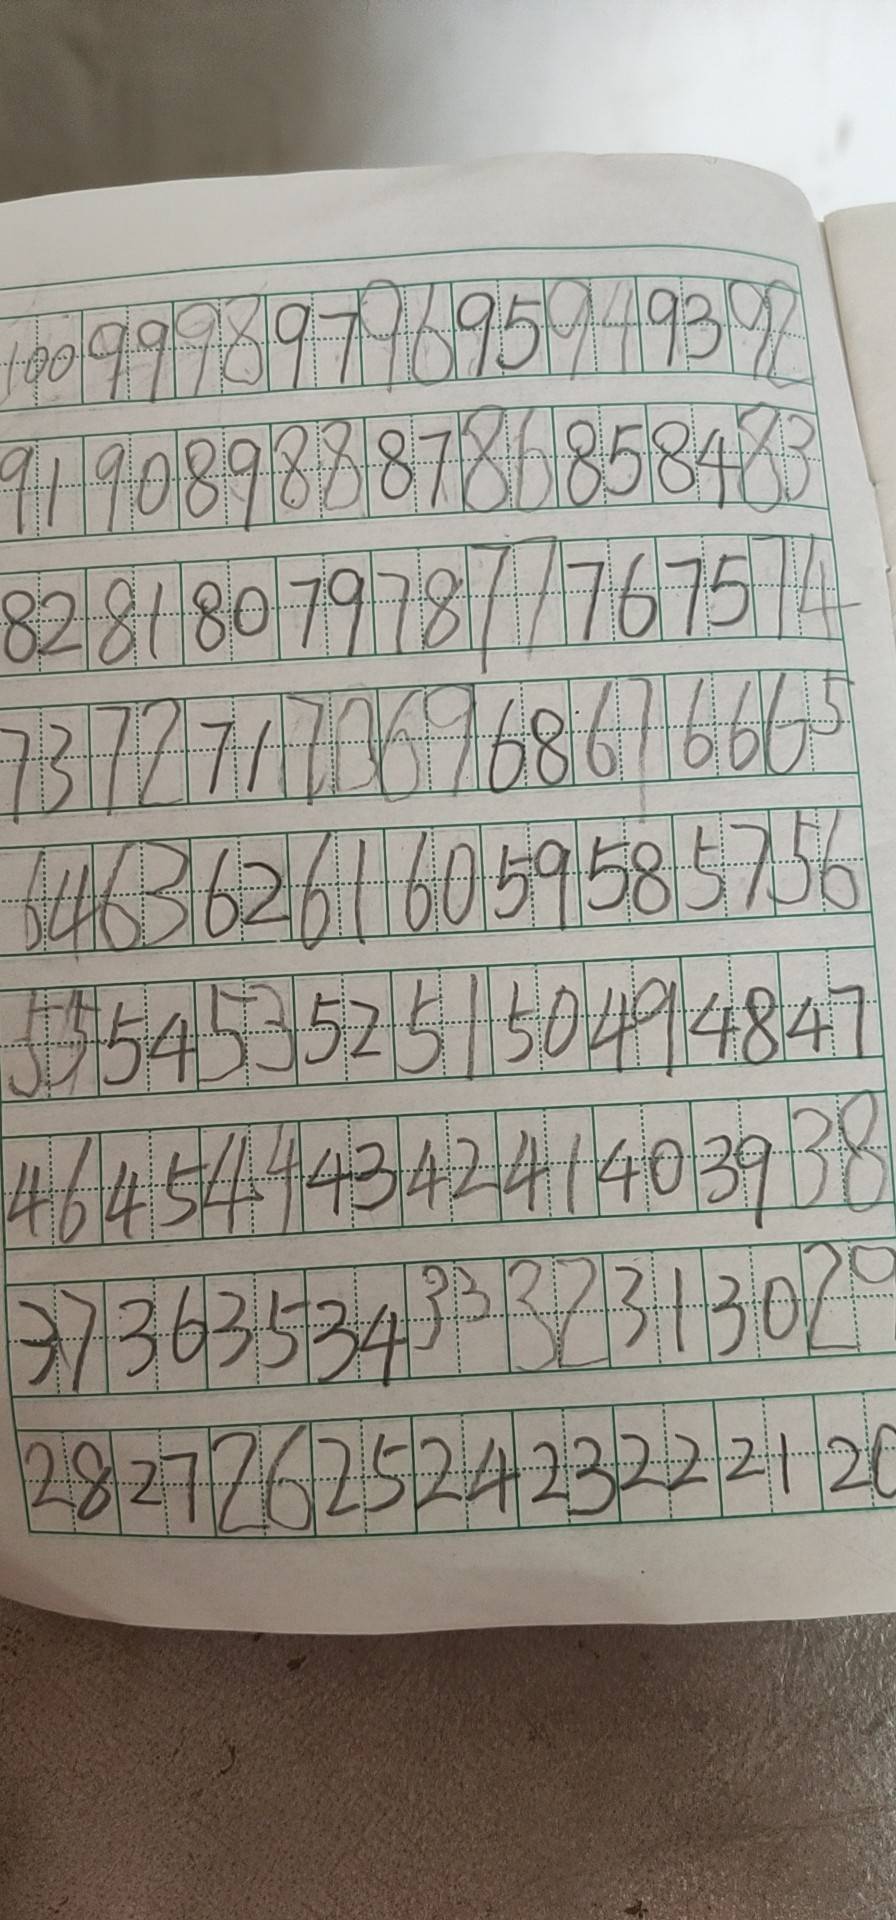 100 99 98 97 96 95 94 93 92
91 90 89 88 87 86 85 84 83
82 81 80 79 78 77 76 75 74
73 72 71 70 69 68 67 66 65
64 63 62 61 60 59 58 57 56
55 54 53 52 51 50 49 48 47
46 45 44 43 42 41 40 39 38
37 36 35 34 33 32 31 30 29
28 27 26 25 24 23 22 21 20